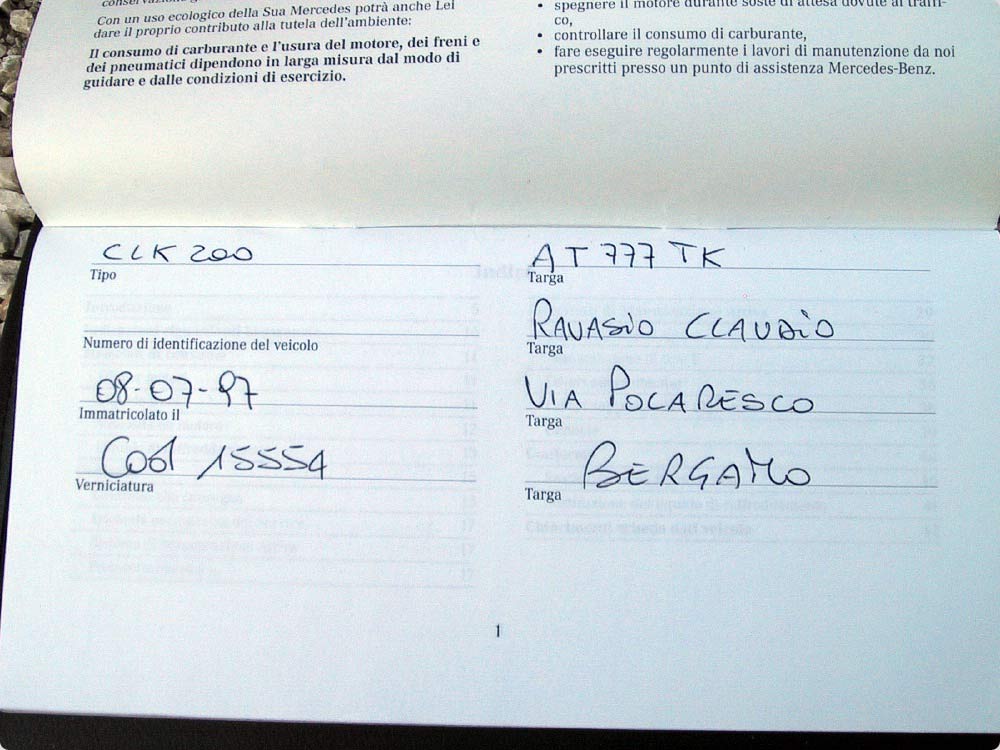 conservazione
Con un uso ecologico della Sua Mercedes potrà anche Lei
dare il proprio contributo alla tutela dell'ambiente:
Il consumo di carburante e l'usura del motore, dei freni e
dei pneumatici dipendono in larga misura dal modo di
guidare e dalle condizioni di esercizio.
• spegnere il motore durante soste di attesa dovute al traffi-
co,
• controllare il consumo di carburante,
• fare eseguire regolarmente i lavori di manutenzione da noi
prescritti presso un punto di assistenza Mercedes-Benz.
CLK 200
Tipo
Numero di identificazione del veicolo
08-07-97
Immatricolato il
Cod 15554
Verniciatura
AT 777 TK
Targa
RAVASIO CLAUDIO
Targa
VIA POCARESCO
Targa
BERGAMO
Targa
1